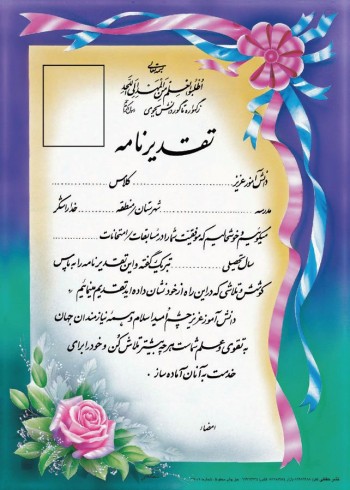 بسمه تعالی
اُطْلُبُوا الْعِلْمَ مِنَ الْمَهْدِ اِلَی اللَّحْدِ
ز گهواره تا گور دانش بجوی
تقدیرنامه
دانش آموز عزیز .......... کلاس ..........
مدرسه .......... شهرستان / منطقه .......... خدا را شکر
میگوئیم و خوشحالیم که موفقیت شما را در مسابقات / امتحانات
سال تحصیلی .......... تبریک گفته و این تقدیرنامه را به پاس
کوشش و تلاشی که در این راه از خود نشان داده اید تقدیم مینمائیم
دانش آموز عزیز چشم امید اسلام و همه نیازمندان جهان
به تقوی و علم شماست هر چه بیشتر تلاش کن و خود را برای
خدمت به آنان آماده ساز .
امضاء